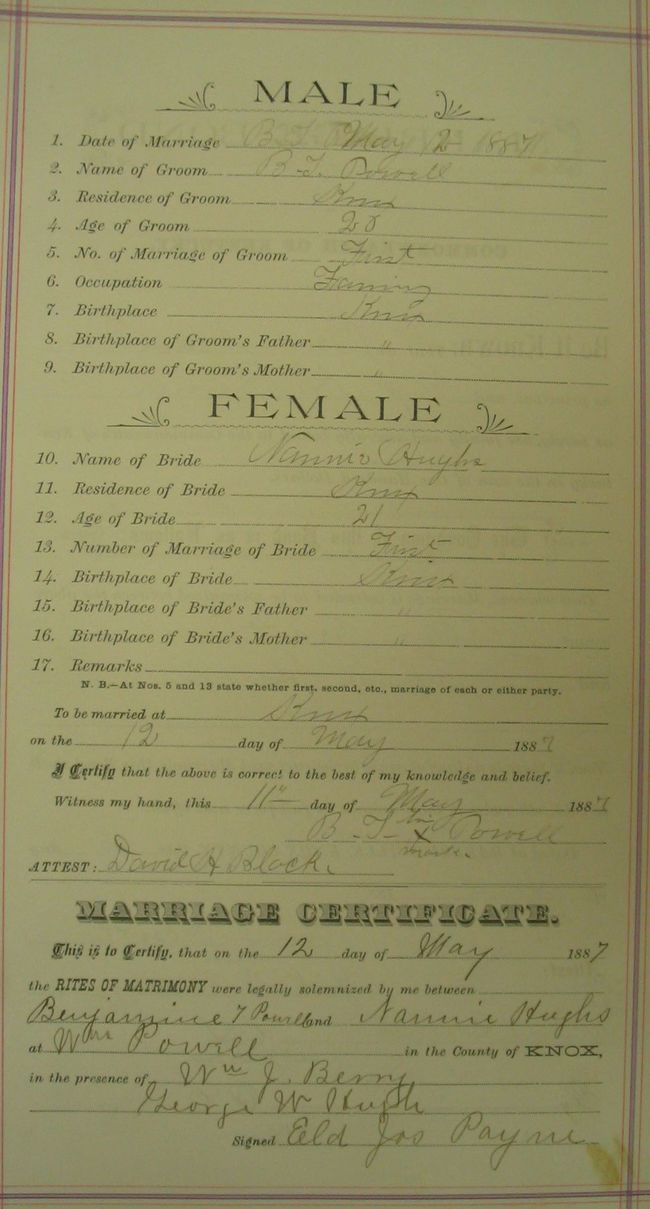 MALE
1. Date of Marriage May 12 1887
2. Name of Groom B. T. Powell
3. Residence of Groom Knox
4. Age of Groom
5. No. of Marriage of Groom First
6. Occupation Farming
7. Birthplace Knox
8. Birthplace of Groom's Father "
9. Birthplace of Groom's Mother "
FEMALE
10. Name of Bride Nannie Hughs
11. Residence of Bride Knox
12. Age of Bride 21
13. Number of Marriage of Bride First
14. Birthplace of Bride Knox
15. Birthplace of Bride's Father "
16. Birthplace of Bride's Mother "
17. Remarks
N. B.—At Nos. 5 and 13 state whether first, second, etc., marriage of each or either party.
To be married at Knox
on the 12 day of May 1887
I Certify that the above is correct to the best of my knowledge and belief.
Witness my hand, this 11" day of May 1887
his
B. T. X Powell
mark.
ATTEST: David H Black.
MARRIAGE CERTIFICATE.
This is to Certify, that on the 12 day of May 1887
the RITES OF MATRIMONY were legally solemnized by me between
Benjamine F Powell and Nannie Hughs
at Wm Powell in the County of KNOX,
in the presence of Wm J. Berry
George W Hugh
Signed Eld Jos Payne